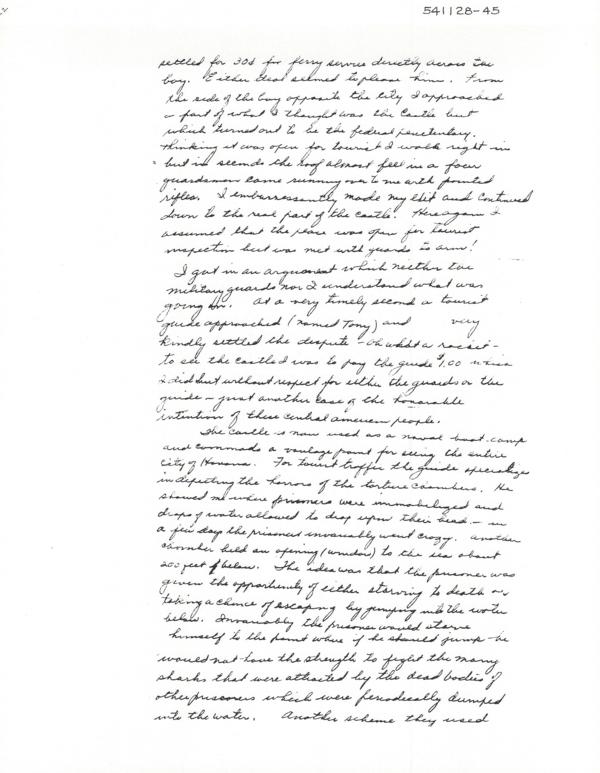 541128-45
settled for 30¢ for ferry service directly across the
bay. Either deal seemed to please him. From
the side of the bay opposite the city I approached
a part of what I thought was the Castle but
which turned out to be the federal penetentiary.
Thinking it was open for tourist I walk right in
but in seconds the roof almost fell in a four
guardsmen came running over to me with pointed
rifles. I embarrassantly made my exit and continued
down to the real part of the castle. Here again I
assumed that the place was open for tourist
inspection but was met with guards to arm!
I got in an argument which neither the
military guards nor I understand what was
going on. At a very timely second a tourist
guide approached (named Tony) and very
kindly settled the despute - oh what a racket -
to see the castle I was to pay the guide $1.00 which
I did but without respect for either the guards or the
guide - just another case of the honorable
intention of these central american people.
The castle is now used as a naval boot-camp
and commands a vantage point for seeing the entire
City of Havana. For tourist traffic the guide specializes
in depecting the horrors of the torture chambers. He
showed me where prisoners were immobilized and
drops of water allowed to drop upon their head - in
a few days the prisoners invariably went crazy. Another
chamber held an opening (window) to the sea about
200 feet below. The idea was that the prisoner was
given the opportunity of either starving to death or
taking a chance of escaping by jumping into the water
below. Invariably the prisoner would starve
himself to the point where if he should jump - he
would not have the strength to fight the many
sharks that were attracted by the dead bodies of
other prisoners which were periodically dumped
into the water. Another scheme they used